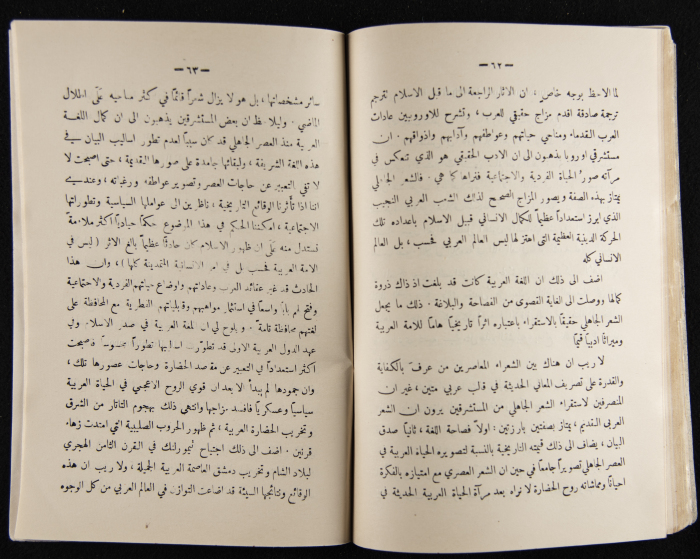 — ٦٢ —
لما الاحظ بوجه خاص، ان الاثار الراجعة الى ما قبل الاسلام تترجم
ترجمة صادقة اقدم مزاج حقيقي للعرب، وتشرح للاوروبيين عادات
العرب القدماء ومناحي حياتهم وعواطفهم وآدابهم واذواقهم. ان
مستشرقي اوروبا يذهبون الى ان الادب الحقيقي هو الذي تنعكس في
مرآته صور الحياة الفردية والاجتماعية فنراها كما هي. فالشعر الجاهلي
يمتاز بهذه الصفة ويصور المزاج الصحيح لذاك الشعب العربي النجيب
الذي ابرز استعداداً عظيماً للكمال الانساني قبيل الاسلام باعداده تلك
الحركة الدينية العظيمة التي اهتز لها ليس العالم العربي فحسب، بل العالم
الانساني كله
اضف الى ذلك ان اللغة العربية كانت قد بلغت اذ ذاك ذروة
كمالها ووصلت الى الغاية القصوى من الفصاحة والبلاغة. ذلك ما يجعل
الشعر الجاهلي حقيقاً بالاستقراء باعتباره اثراً تاريخياً هاماً للامة العربية
وميراثاً ادبياً قيماً
لا ريب ان هناك بين الشعراء المعاصرين من عرف بالكفاية
والقدرة على تصريف المعاني الحديثة في قالب عربي متين، غير ان
المنصرفين لاستقراء الشعر الجاهلي من المستشرقين يرون ان الشعر
العربي القديم، يمتاز بصفتين بارزتين: اولاً فصاحة اللغة، ثانياً صدق
البيان، يضاف الى ذلك قيمته التاريخية بالنسبة لتصويره الحياة العربية في
العصر الجاهلي تصويراً جامعاً في حين ان الشعر العصري مع امتيازه بالفكرة
احياناً ومماشاته روح الحضارة لا نراه بعد مرآة الحياة العربية الحديثة في
— ٦٣ —
سائر مشخصاتها، بل هو لا يزال شعراً قائماً في كثر مناحيه على اطلال
الماضي. وليلاحظ ان بعض المستشرقين يذهبون الى ان كمال اللغة
العربية منذ العصر الجاهلي قد كان سبباً لعدم تطور اساليب البيان في
هذه اللغة الشريفة، ولبقائها جامدة على صورها القديمة، حتى اصبحت لا
لا تفي التعبير عن حاجات العصر وتصوير عواطفه ورغباته، وعندي
اننا اذا تأثرنا الوقائع التاريخية، ناظرين الى عواملها السياسية وتطوراتها
الاجتماعية، امكننا الحكم في هذا الموضوع حكماً حيادياً اكثر ملاءمة
نستدل منه على ان ظهور الاسلام كان حادثاً عظيماً بالغ الاثر (ليس في
الامة العربية فحسب بل في امر الانسانية المتمدينة كلها)، وان هذا
الحادث قد غير عقائد العرب وعاداتهم واوضاع حياتهم الفردية والاجتماعية
وفتح لهم باباً واسعاً في استثمار مواهبهم وقابلياتهم الفطرية مع المحافظة على
لغتهم محافظة تامة. ويلوح لي ان اللغة العربية في صدر الاسلام وفي
عهد الدول العربية الاولى قد تطورت اساليبها تطوراً محسوساً فاصبحت
اكثر استعداداً في التعبير عن مقاصد الحضارة وحاجات عصورها تلك،
وان جمودها لم يبدأ الا بعد ان قوي الروح الاعجمي في الحياة العربية
سياسياً وعسكرياً فافسد مزاجها وانتهى ذلك بهجوم التاتار من الشرق
وتخريب الحضارة العربية، ثم ظهور الحروب الصليبية التي امتدت زهاء
قرنين. اضف الى ذلك اجتياح تيمورلنك في القرن الثامن الهجري
لبلاد الشام وتخريب دمشق العاصمة العربية الجميلة، ولا ريب ان هذه
الوقائع ونتائجها السيئة قد اضاعت التوازن في العالم العربي من كل الوجوه